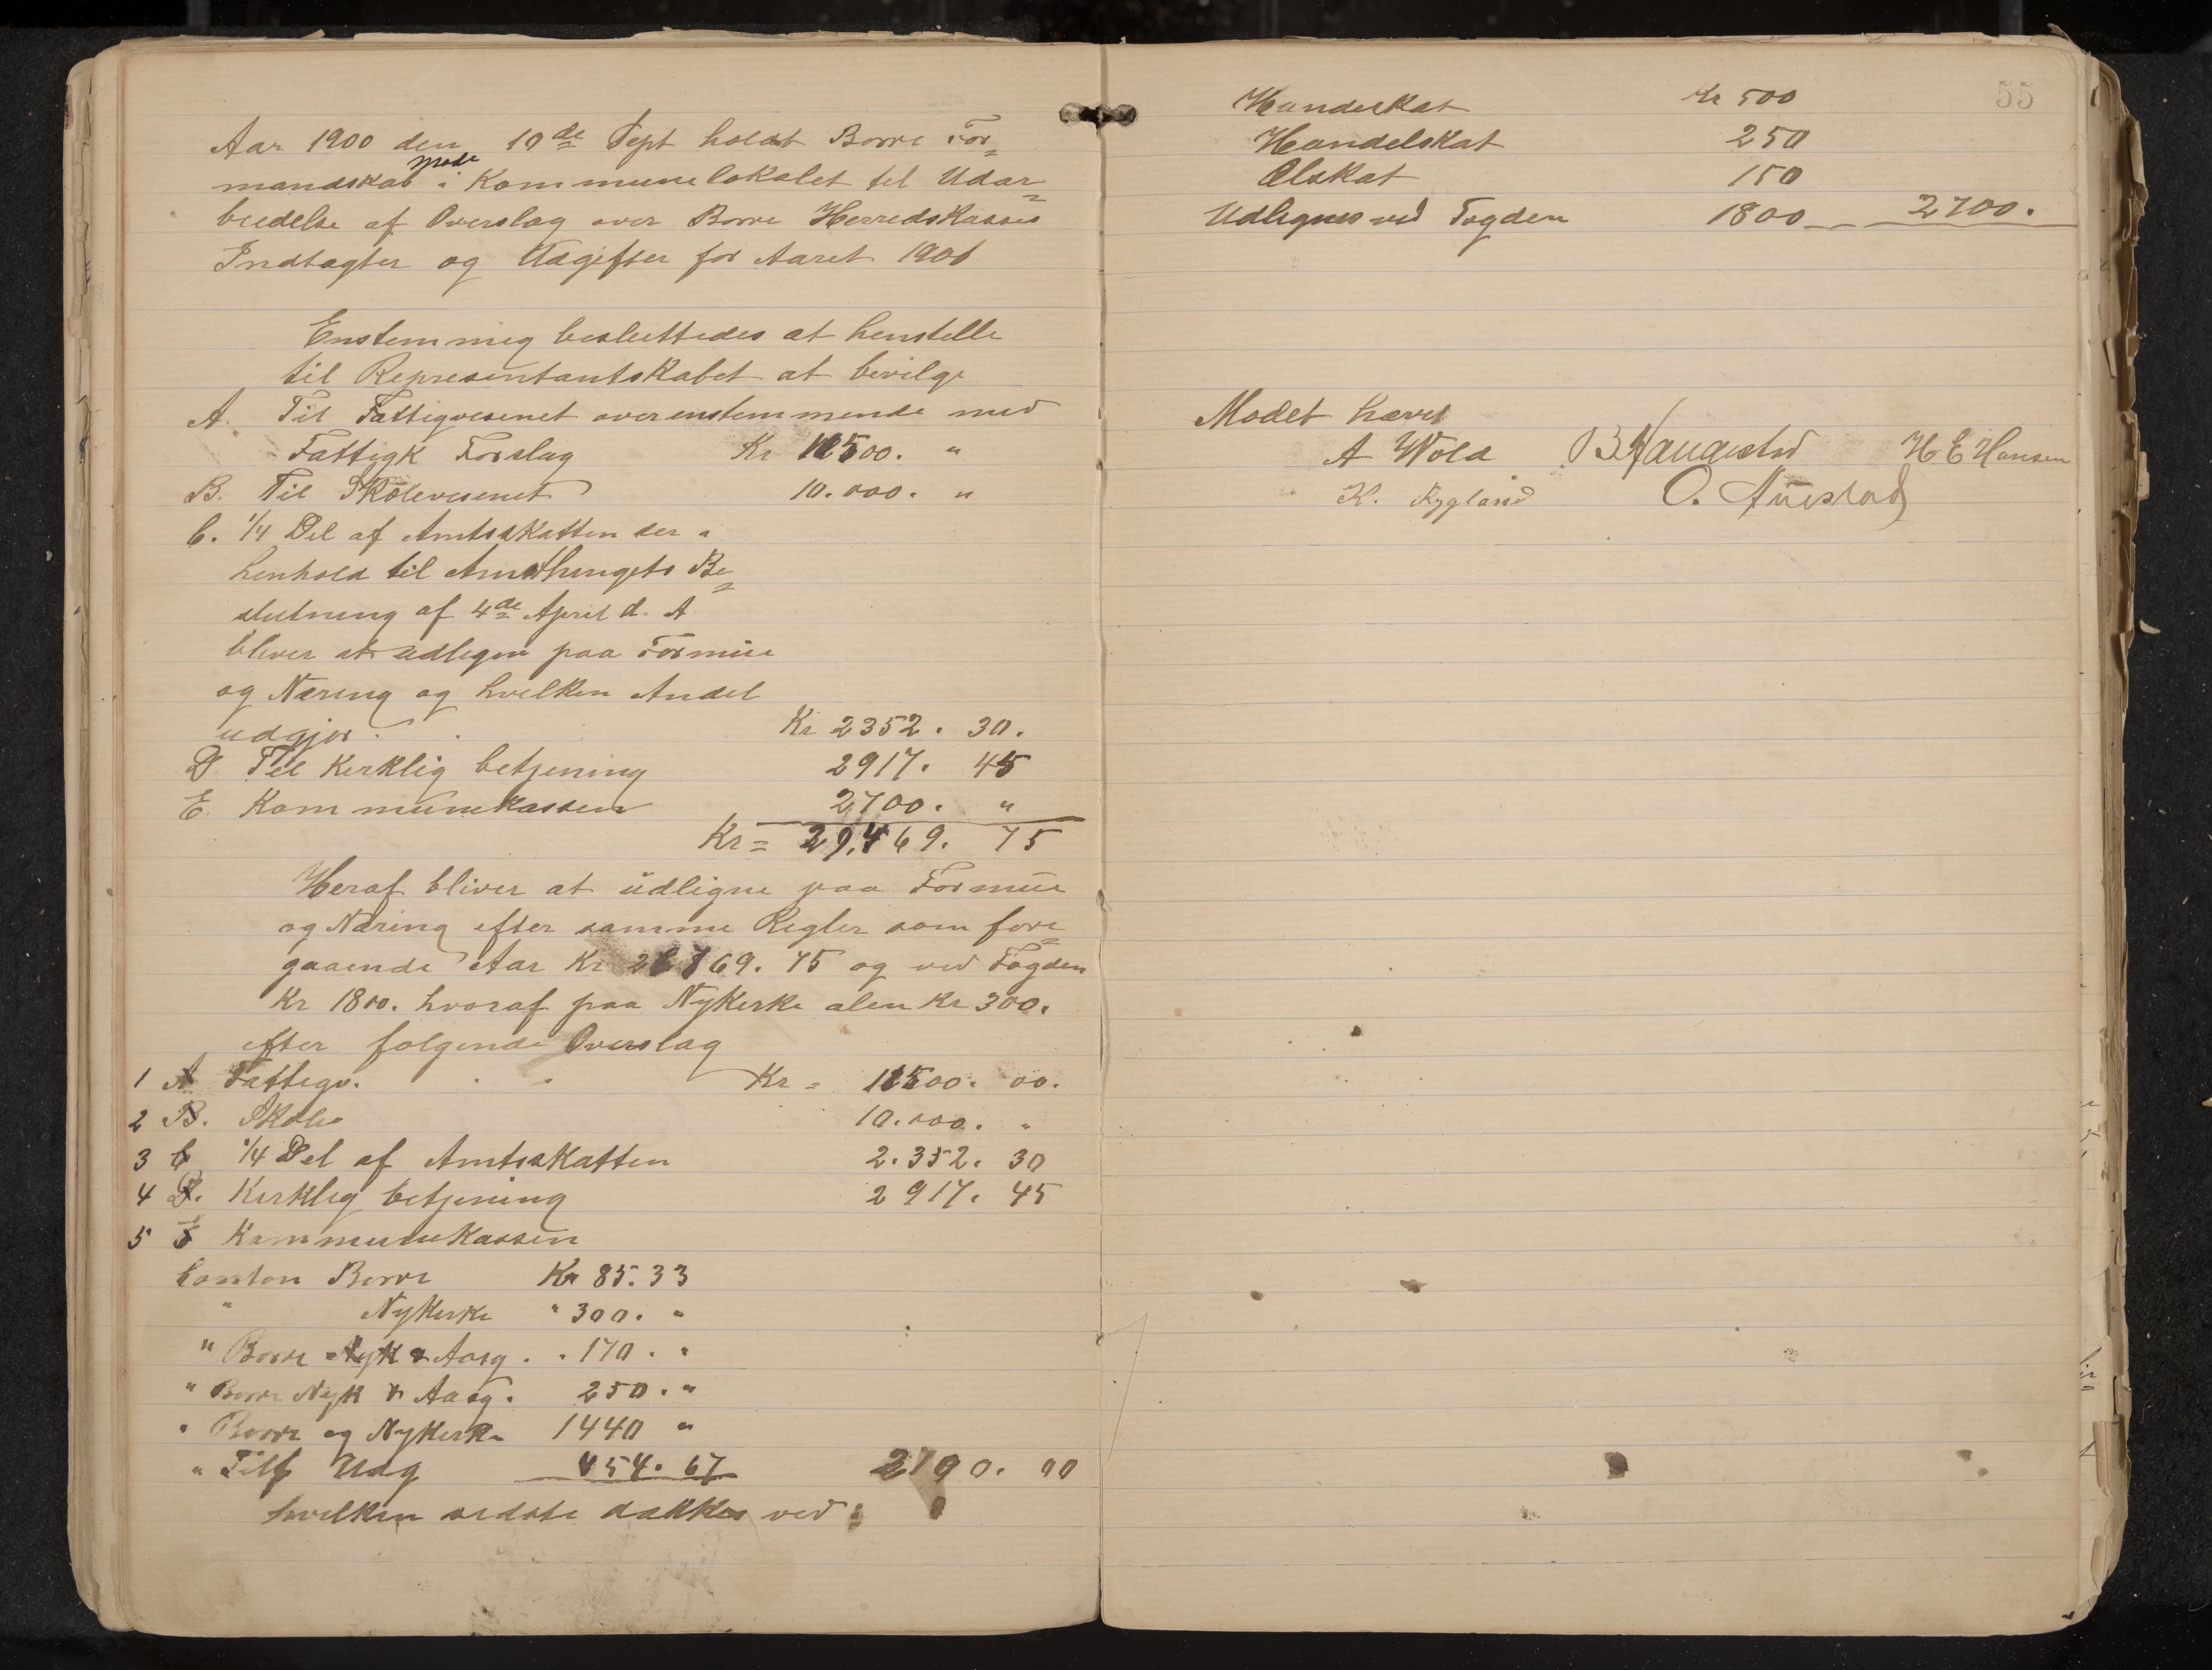 Aar 1900 den 10de Sept holdt Borre For=
mandskab Møde i Kommunelokalet til Udar=
beidelse af Overslag over Borre Herredskasses
Indtægter og Udgifter for Aaret 1901
Enstemmig besluttedes at henstille
til Representantskabet at bevilge
A. Til Fattigvesenet overenstemmende med
Fattigk Forslag Kr 11500. "
B. Til Skolevesenet 10.000. "
C. 1/4 Del af Amtsskatten der i
henhold til Amtsthingets Be=
slutning af 4de April d. A.
bliver at udligne paa Formue
og Næring og hvilken Andel
udgjør. Kr 2352. 30.
D Til Kirklig betjening 2917. 45
E. Kommunekassen 2700. "
Kr = 29.469. 75
Heraf bliver at udligne paa Formue
og Næring efter samme Regler som fore=
gaaende Aar Kr 26769. 75 og ved Fogden
Kr 1800. hvoraf paa Nykirke alen Kr 300.
efter følgende Overslag
1 A Fattigv. Kr = 11500. 00.
2 B. Skole 10.000. "
3 C 1/4 Del af Amtsskatten 2.352. 30
4 D. Kirklig betjening 2917. 45
5 E Kommunekassen
Conton Borre Kr 85.33
" Nykirke " 300. "
" Borre Nyk & Aasg. " 170. "
" Borre Nyk & Aasg. 250. "
" Borre og Nykirke 1440 "
" Tilf Udg 454. 67 2700. 00
hvilken sidste dækkes ved:
55
Hundeskat Kr 500
Handelskat 250
Ølskat 150
Udlignes ved Fogden 1800 2700.
Mødet hævet
A Wold B Haugestad H E Hansen
K. Rygland O. Aurstad